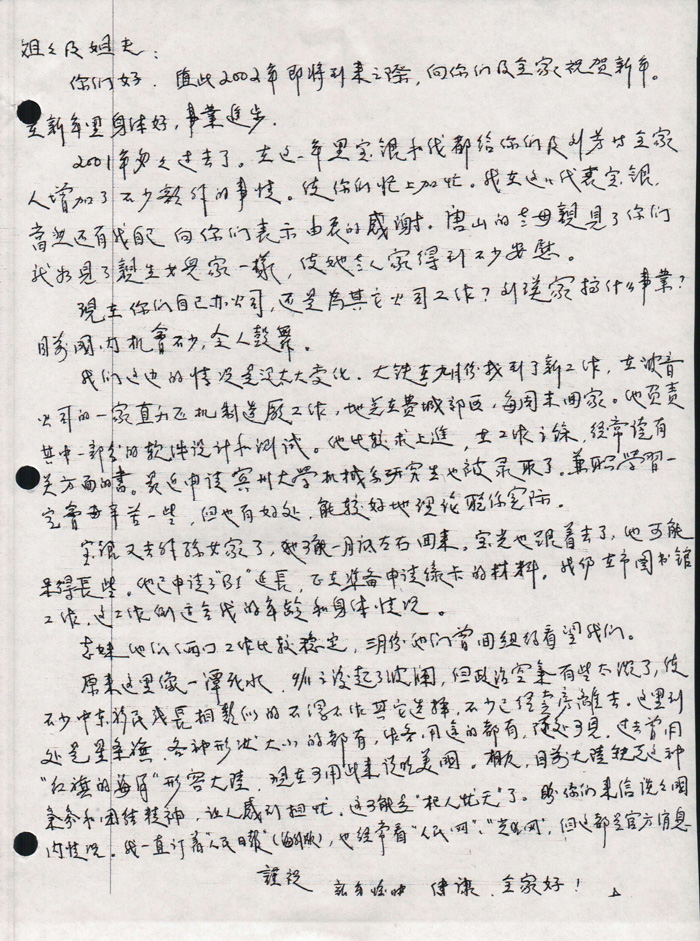 姐姐及姐夫：
你们好．值此2002年即将到来之際，向你们及全家祝贺新年。
在新年里身体好，事業進步．
2001年匆匆过去了。在这一年里宝银和我都给你们及刘芳全家
人增加了不少額外的事情。使你们忙上加忙。我在这儿代表宝银，
當然还有我自己 向你们表示由衷的感謝．唐山的老母親見了你们
就如見了親生女兒家一樣，使她老人家得到不少安慰。
現在你们自己办公司，还是為其它公司工作？刘瑛家搞什么事業？
目前國内机會不少，令人鼓舞。
我们这边的情况是没太大变化．大铁在九月份找到了新工作，在波音
公司的一家直升飞机制造厰工作，地点在费城郊区，每周末回家。他负责
其中一部分的软件设计和测试。他比较求上進，在工作之餘，经常读有
关方面的書。最近申请宾州大学机械系研究生也被录取了。兼职学習一
定會辛苦一些，但也有好处，能较好地理论联係实际。
宝银又去外孫女家了，她可能一月底左右回来。宝光也跟着去了，他可能
呆得長些。他已申请了"B1"延長，正在准备申请绿卡的材料。我仍在市圖书館
工作，这工作倒适合我的年龄和身体情况。
他们俩口工作比较稳定，三月份他们曾回纽约看望我们。
原来这里像一潭死水，没起了波闌，但政治空氣有些太濃了，使
不少中东移民或長相類似的不得不作其它选择，不少已经离去。这里到
处是星条旗，各种形状大小的都有，作各用途的都有，随处可見．过去曾用
"红旗的海洋"形容大陸，現在可用此来说明美国。相反，目前大陸缺乏这种
氣氛和团结精神，让人感到担忧。这可能是"杞人忧天"了。盼你们来信谈谈國
内情况。我一直订着"人民日報"(海外版)，也经常看"人民网"、"光明网"，但这都是官方消息．
謹祝
新年愉快 健康．全家好！